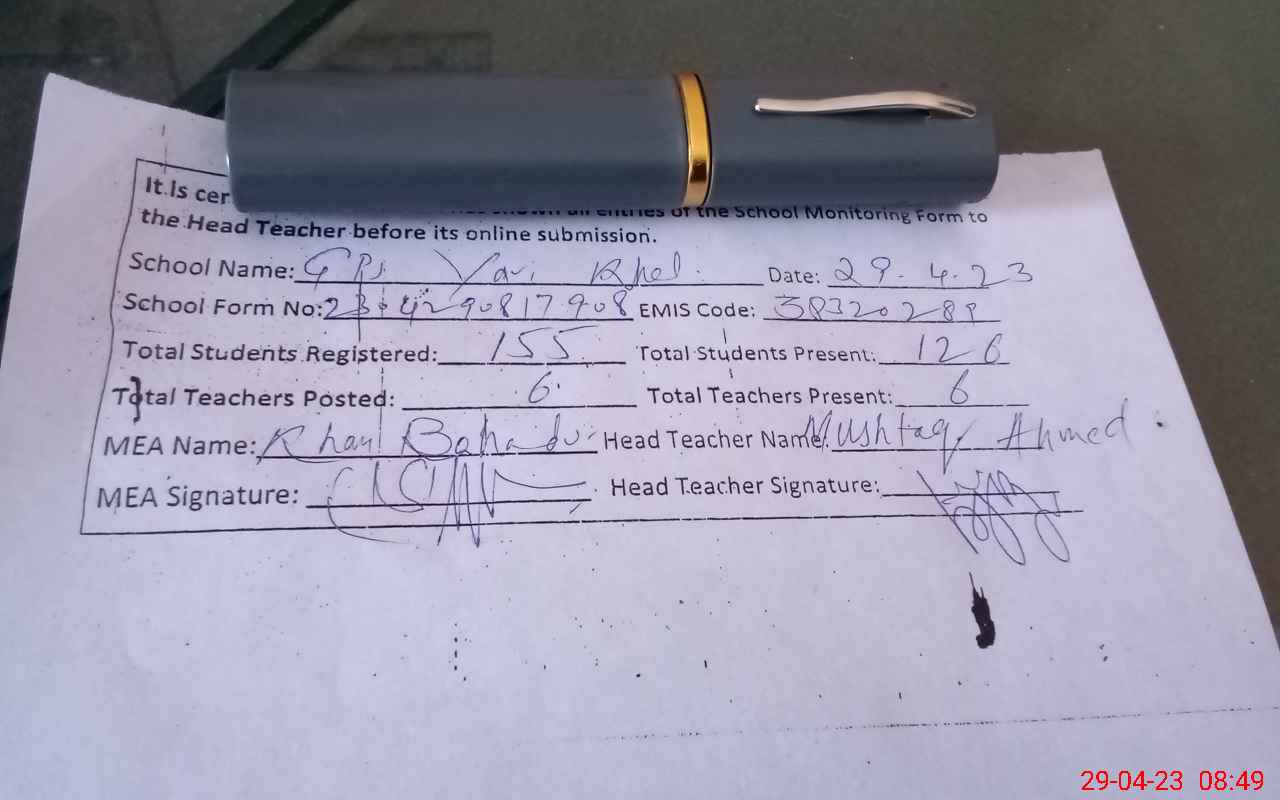 It is cer all entries of the School Monitoring Form to
the Head Teacher before its online submission.
School Name: GPS Yari Khel. Date: 29.4.23
School Form No: EMIS Code: 38320289
Total Students Registered: 155 Total Students Present: 126
Total Teachers Posted: 6 Total Teachers Present: 6
MEA Name: Khan Bahadur Head Teacher Name: Mushtaq Ahmed
MEA Signature: Head Teacher Signature:
29-04-23 08:49